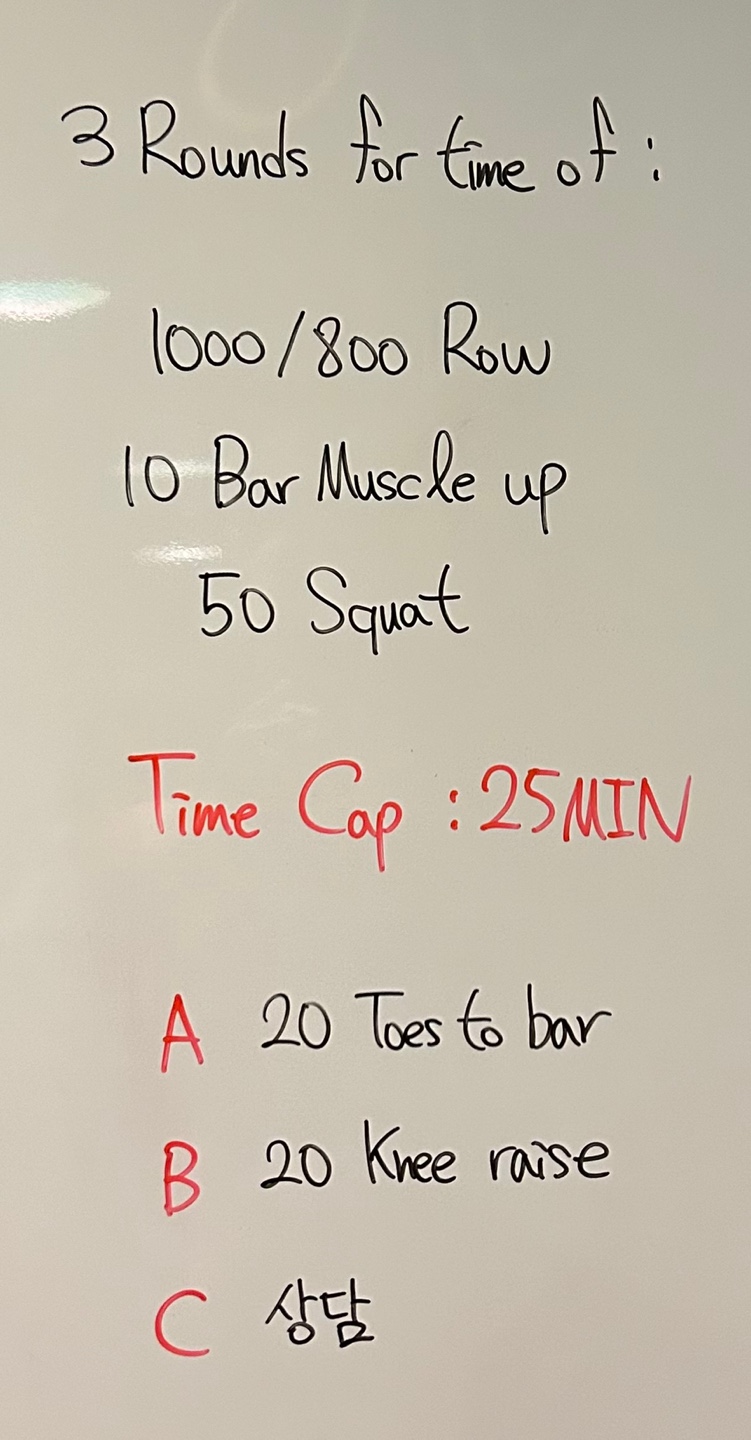 3 Rounds for time of :
1000/800 Row
10 Bar Muscle up
50 Squat
Time Cap : 25MIN
A 20 Toes to bar
B 20 Knee raise
C 상담